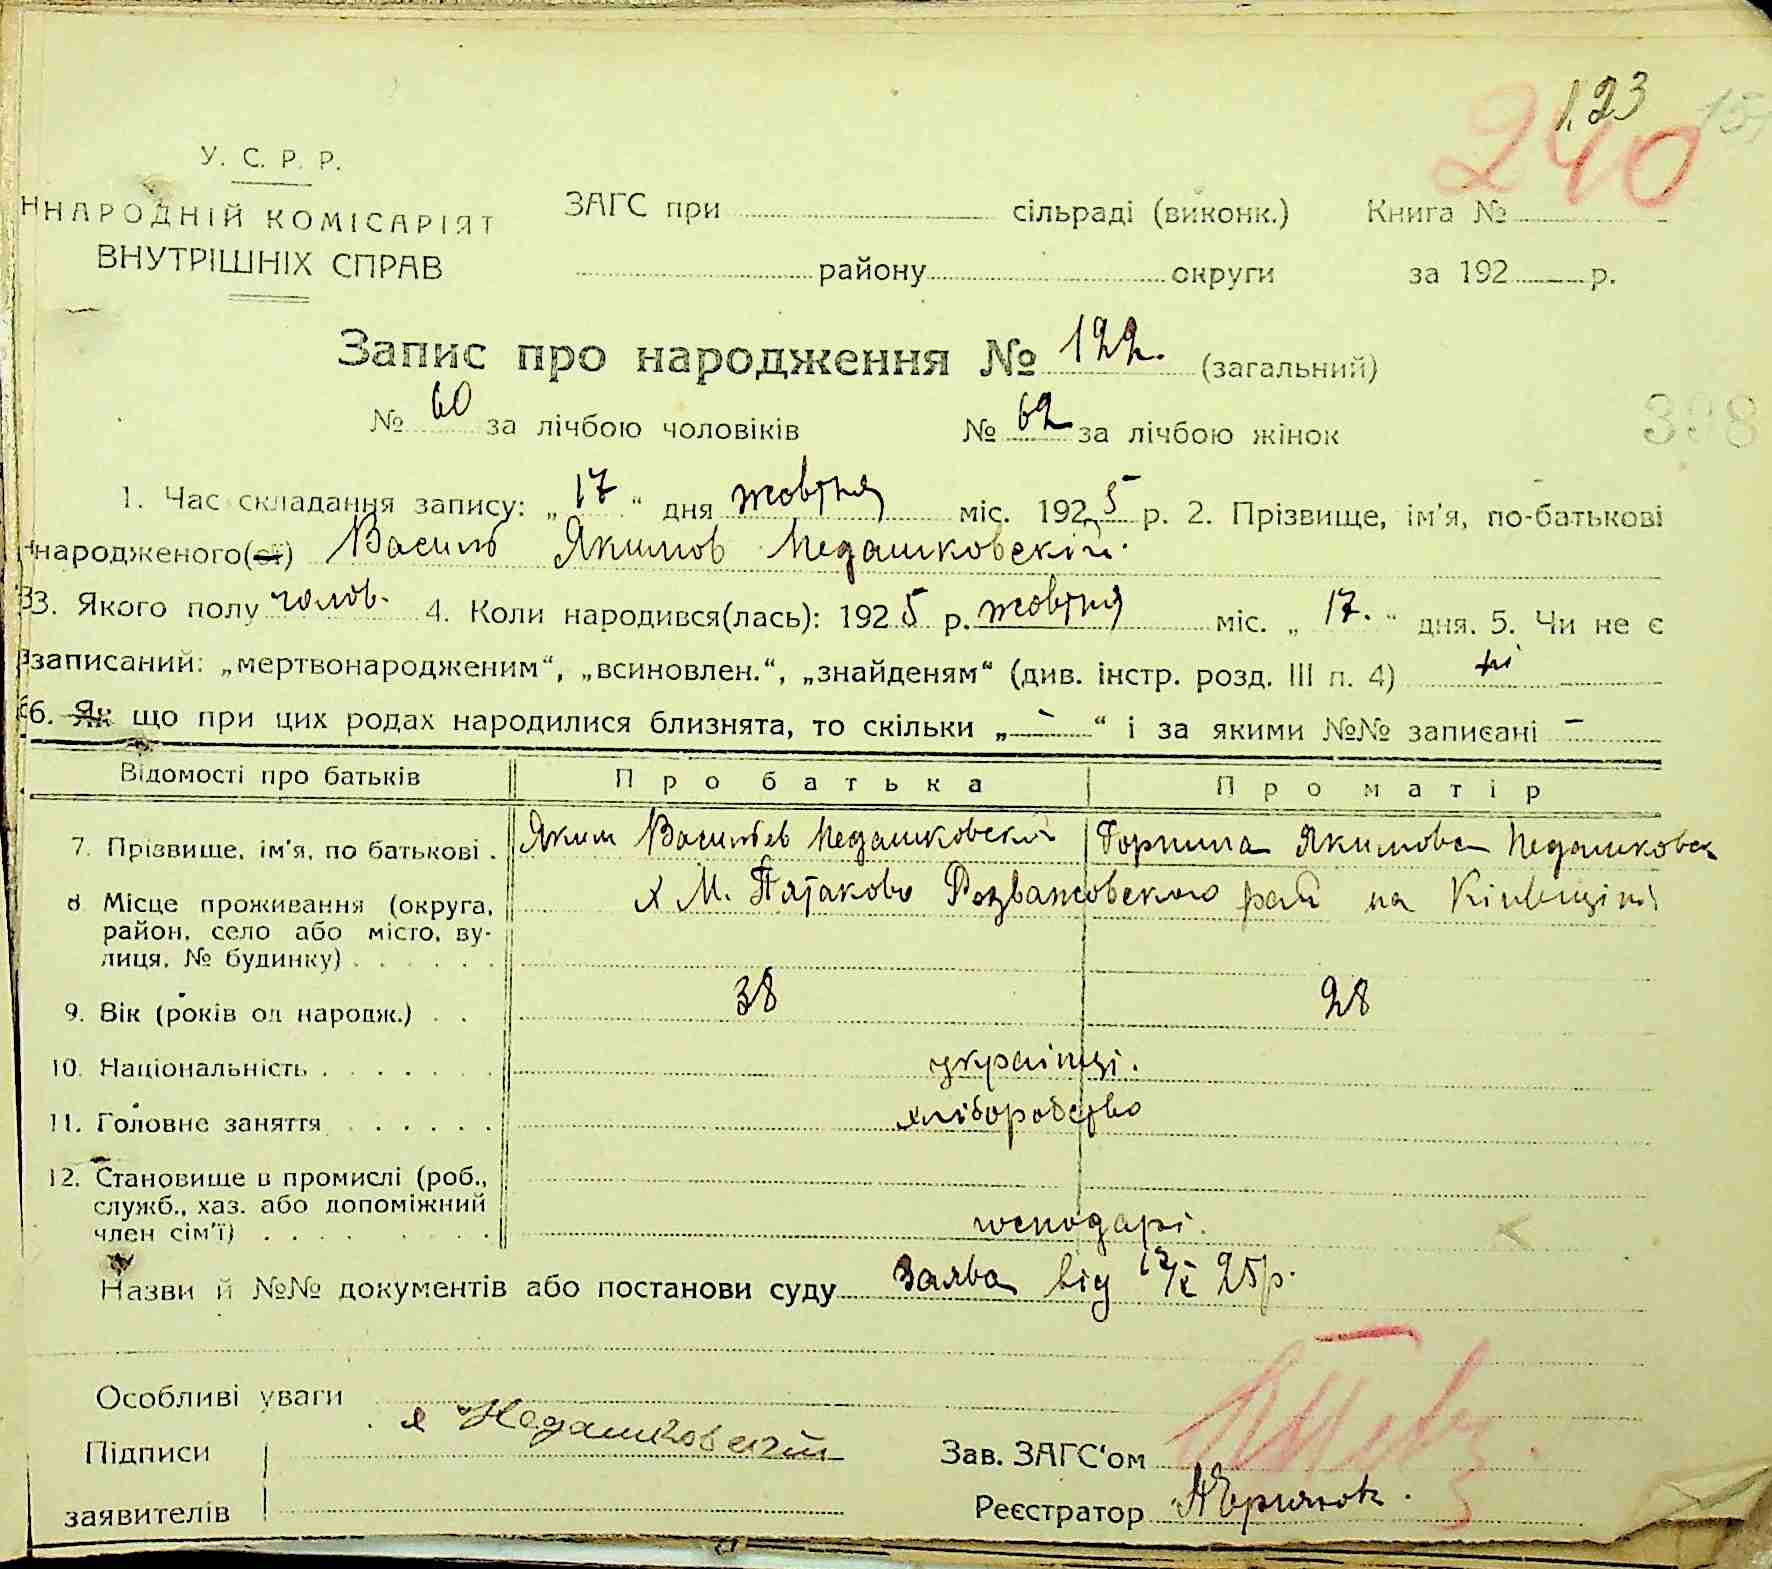 123
240
У. С. Р. Р.
НАРОДНІЙ КОМІСАРІЯТ
ВНУТРІШНІХ СПРАВ
ЗАГС при сільраді (виконк.) Книга №
району округи за 192 р.
Запис про народження № 122. (загальний)
№ 60 за лічбою чоловіків № 62 за лічбою жінок
398
1. Час складання запису: „17“ дня жовтня міс. 1925 р. 2. Прізвище, ім'я, по-батькові
народженого(ої) Василь Якимов Недашковський.
3. Якого полу чолов. 4. Коли народився(лась): 1925 р. жовтня міс. „17.“ дня. 5. Чи не є
записаний: „мертвонародженим“, „всиновлен.“, „знайденям“ (див. інстр. розд. III п. 4) ні
6. Як що при цих родах народилися близнята, то скільки „-“ і за якими №№ записані -
Відомості про батьків Про батька Про матір
7. Прізвище, ім'я, по батькові . Яким Васильев Недашковский Горпина Якимова Недашковск
8. Місце проживання (округа, х М. Розважовского рай на Київщині
район, село або місто, ву-
лиця, № будинку) . . . . . .
9. Вік (років од народж.) . . 38 28
10. Національність . . . . . . . українці.
11. Головне заняття . . . . . . хліборобство
12. Становище в промислі (роб.,
служб., хаз. або допоміжний
член сім'ї) . . . . . . . . господарі.
Назви й №№ документів або постанови суду Заява від 17/X 25р.
Особливі уваги
Підписи я Недашковский
Зав. ЗАГС'ом
заявителів
Реєстратор